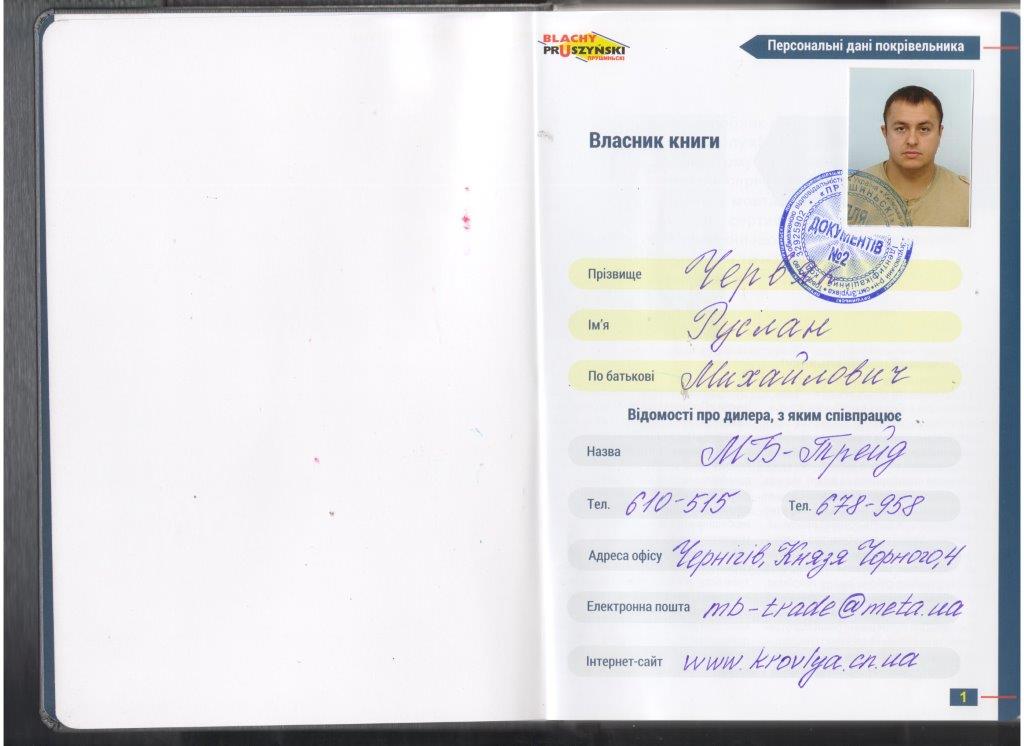 BLACHY
PRUSZYŃSKI
ПРУШИНЬСКІ
Персональні дані покрівельника
Власник книги
ДОКУМЕНТІВ
№2
32925902
Прізвище
Ім'я Руслан
По батькові Михайлович
Відомості про дилера, з яким співпрацює
Назва МБ-Трейд
Тел. 610-515 Тел. 678-958
Адреса офісу Чернігів, Князя Чорного,4
Електронна пошта mb-trade@meta.ua
Інтернет-сайт www.krovlya.cn.ua
1